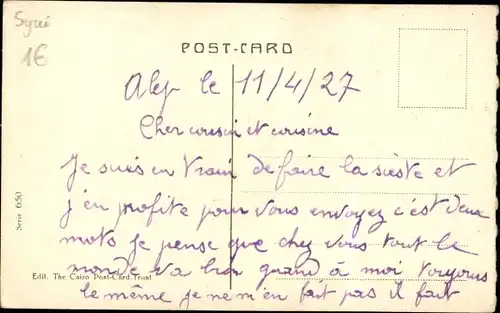 Syrie
1€
POST-CARD
Alep le 11/4/27
Cher cousin et cousine
Je suis en train de faire la sièste et
j'en profite pour vous envoyez c'est deux
mots je pense que chez vous tout le
monde va bien quand à moi toujours
le même je ne m'en fait pas il fait
Serie 650
Edit. The Cairo Post-Card Trust